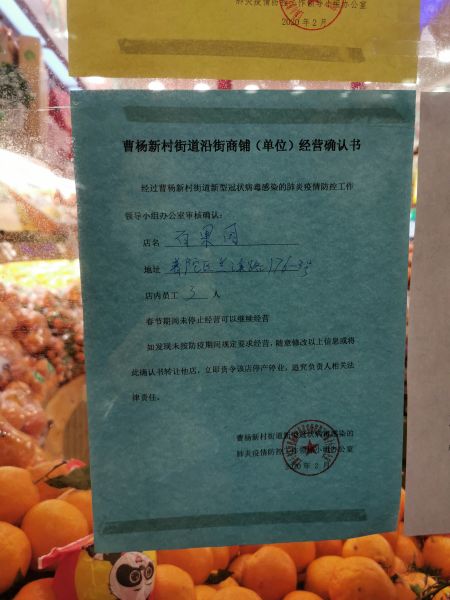 肺炎疫情防控工作领导小组办公室
2020年2月
曹杨新村街道沿街商铺（单位）经营确认书
经过曹杨新村街道新型冠状病毒感染的肺炎疫情防控工作
领导小组办公室审核确认：
店名 百果园
地址 普陀区兰溪路176-3号
店内员工 3 人
春节期间未停止经营可以继续经营
如发现未按防疫期间规定要求经营，随意修改以上信息或将
此确认书转让他店，立即责令该店停产停业，追究负责人相关法
律责任。
曹杨新村街道新型冠状病毒感染的
肺炎疫情防控工作领导小组办公室
2020年2月